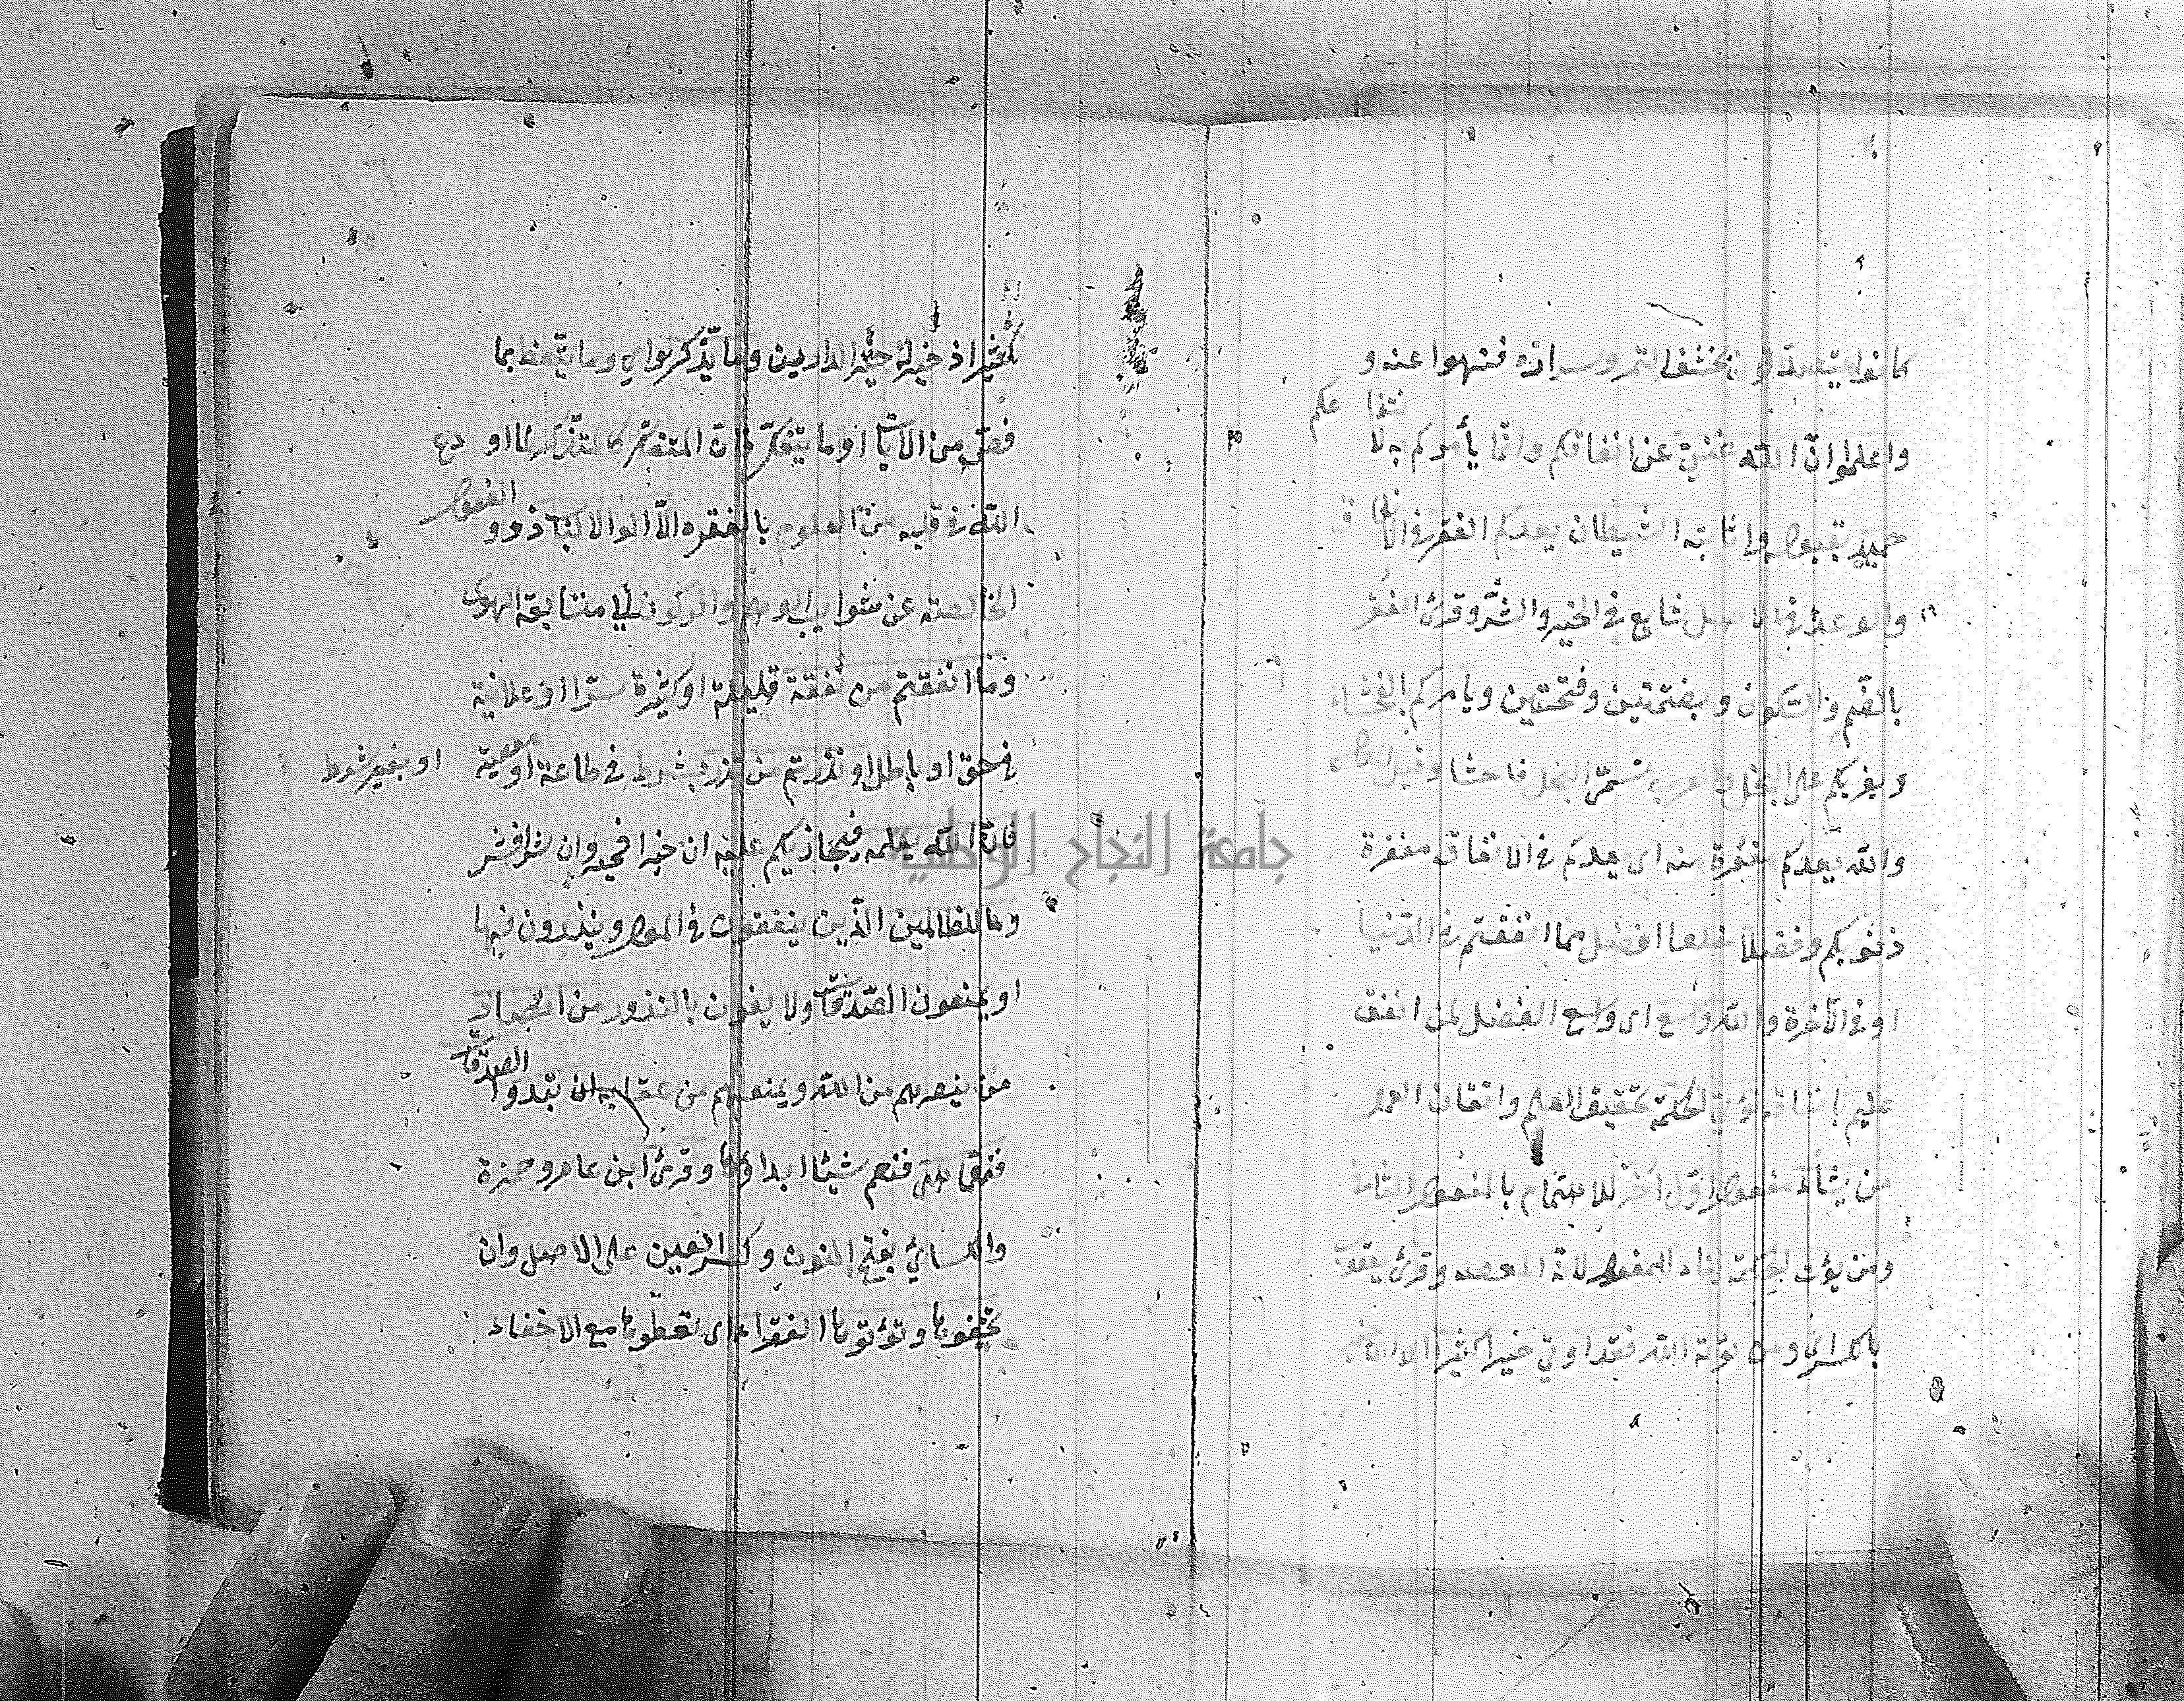 كانوا يتصدقون بحشف التمر وشراره فنهوا عنه و
واعلموا ان الله غني عن انفاقكم وانما يأمركم به لا
نتفاعكم
حميد بقبوله واثابته الشيطان يعدكم الفقر في الا
نفاق
والوعد في الاصل شايع في الخير والشر وقرئ الفقر
بالضم والسكون وبضمتين وفتحتين ويأمركم بالفحشاء
ويغريكم على البخل والعرب تسمى البخيل فاحشا وقيل
والله يعدكم مغفرة منه اى يعدكم في الانفاق مغفرة
ذنوبكم وفضلا خلفا افضل مما انفقتم في الدنيا
او في الآخرة والله واسع اى واسع الفضل لمن انفق
عليم بانفاقه يؤتي الحكمة تحقيق العلم واتقان العمل
من يشاء مفعول اول اخر للاهتمام بالمفعول الثاني
ومن يؤت الحكمة بناه للمفعول لانه المقصود وقرئ يعقوب
بالكسر اى ومن يؤته الله فقد اوتي خيرا كثيرا
كثير اذ خير له خير الدارين وما يذكر وما يتعظ بما
قص من الآيات او ما يتفكر فان المتفكر كالمتذكر لما او دع
الله في قلبه من العلوم بالقوة الا اولوا الالباب ذوو
العقول
الخالصة عن شوايب الوهم والركون الى متابعة الهوى
وما انفقتم من نفقة قليلة او كثيرة سرا او علانية
في حق او باطل او نذرتم من نذر بشرط في طاعة او معصية
او بغير شرط
فان الله يعلمه فيجازيكم عليه ان خيرا فخير وان شرا فشر
وما للظالمين الذين ينفقون في المعاصي وينذرون فيها
او يمنعون الصدقات ولا يفون بالنذور من انصار
من ينصرهم من الله ويمنعهم من عقابه ان تبدوا
الصدقات
فنعما هي فنعم شيئا ابداؤها وقرئ ابن عامر وحمزة
والكسائي بفتح النون وكسر العين على الاصل وان
تخفوها وتؤتوها الفقراء اى تعطوها مع الاخفاء
جامعة النجاح الوطنية